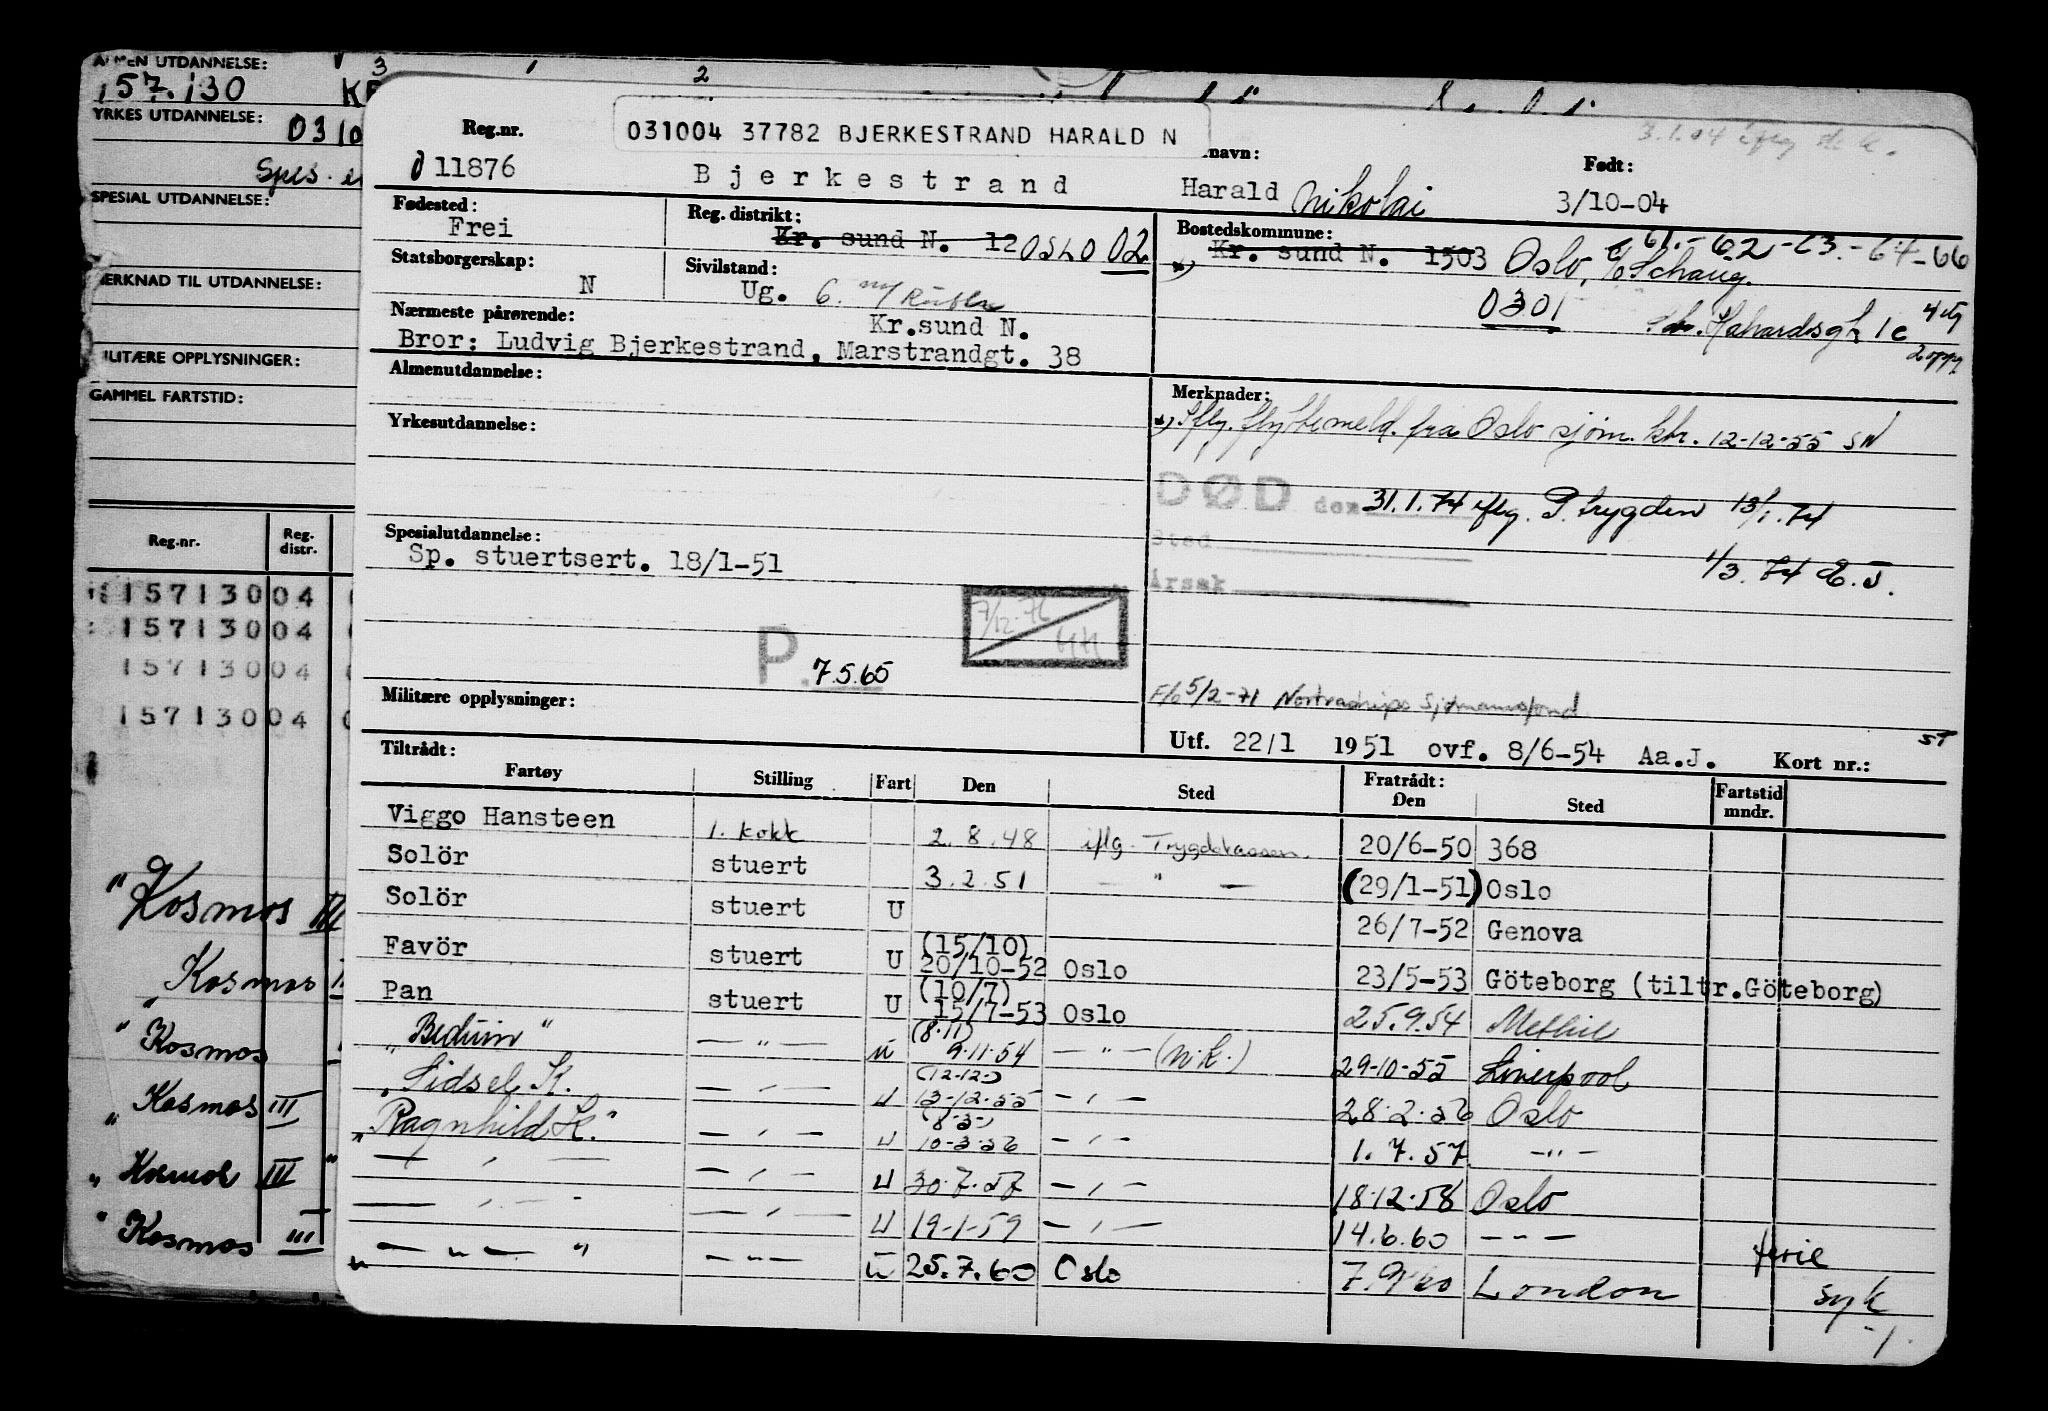 ALMEN UTDANNELSE:
157.130
YRKES UTDANNELSE:
0310
Spes.
SPESIAL UTDANNELSE:
MERKNAD TIL UTDANNELSE:
MILITÆRE OPPLYSNINGER:
GAMMEL FARTSTID:
Reg.nr. Reg. distr.
15713004
15713004
15713004
15713004
" Kosmos III
Kosmos
" Kosmos
" Kosmos III
" Kosmos III "
" Kosmos III
031004 37782 BJERKESTRAND HARALD N
Reg.nr. navn: Født:
011876 Bjerkestrand Harald Nikolai 3/10-04
3.1.04 iflg
Fødested: Reg. distrikt: Bostedskommune:
Frei Kr. sund N. 12 OSLO 02 Kr. sund N. 1503 Oslo, c/o Schaug. 61.-62-63.-64-66
0301
Statsborgerskap: Sivilstand:
N Ug. G.
Nærmeste pårørende: Kr.sund N.
Bror: Ludvig Bjerkestrand, Marstrandgt. 38
1c
4 etg
2 oppg
Almenutdannelse: Merknader:
Iflg. flyttemeld. fra Oslo sjøm. ktr. 12-12-55 SN
Yrkesutdannelse:
DØD den 31.1.74 iflg. P. trygden 13/1.74
Sted
1/3.74 E.J.
Årsak
Spesialutdannelse:
Sp. stuertsert. 18/1-51
7/12-76
P. 7.5.65
Militære opplysninger:
5/2-71 Nortraships Sjømannsfond
Utf. 22/1 1951 ovf. 8/6-54 Aa.J. Kort nr.:
ST
Tiltrådt: Fratrådt:
Fartøy Stilling Fart Den Sted Den Sted Fartstid mndr.
Viggo Hansteen 1. kokk 2.8.48 iflg. Trygdekassen. 20/6-50 368
Solör stuert 3.2.51 — " — (29/1-51) Oslo
Solör stuert U 26/7-52 Genova
Favör stuert U (15/10) 20/10-52 Oslo 23/5-53 Göteborg (tiltr.Göteborg)
Pan stuert U (10/7) 15/7-53 Oslo 25.9.54 Methil
" Beduin " — " — u (8.11) 9.11.54 — " — (N.K.) 29-10-55 Liverpool
" Sidsel K. — " — U (12-12-) 13-12-55 — " — 28.2.56 Oslo
" Ragnhild K. " — " — U (8-3-) 10-3-56 — " — 1.7.57 — " —
— " — — " — U 30.7.57 — " — 18.12.58 Oslo
— " — — " — U 19-1-59 — " — 14.6.60 — " — ferie
" — " — " — " — u 25.7.60 Oslo 7.9.60 London syk